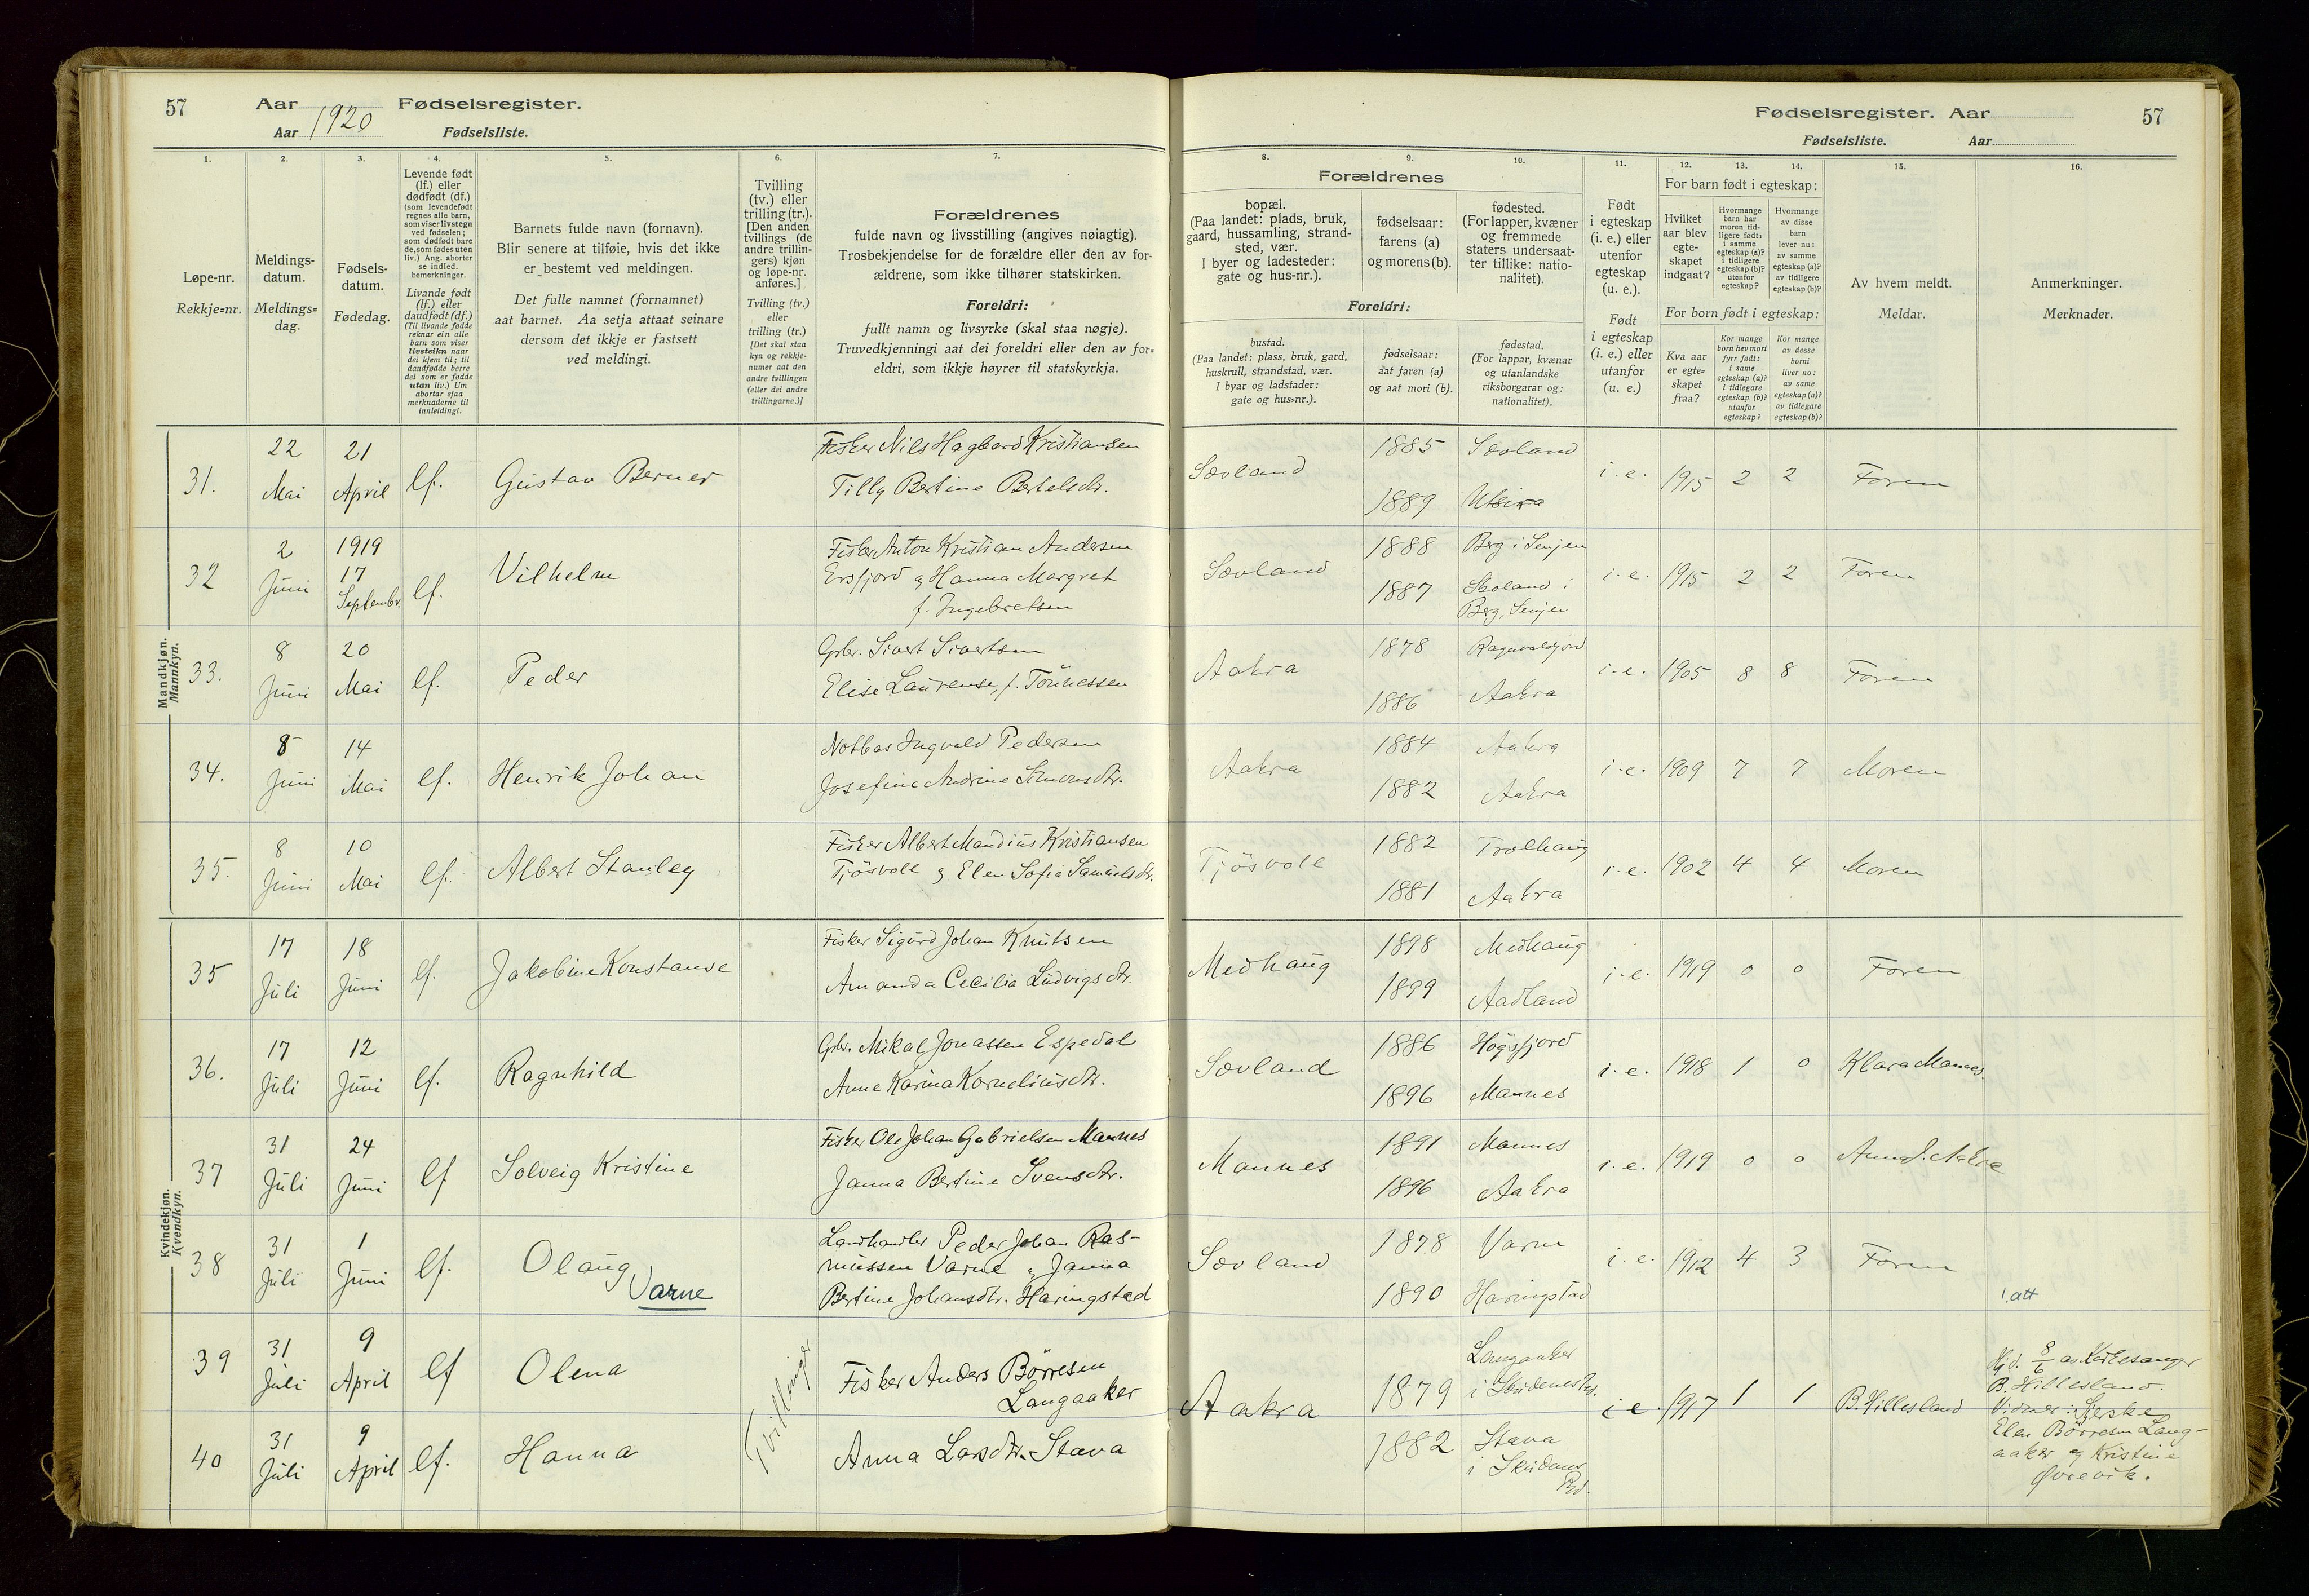 57 Aar 1920 Fødselsregister.
Aar Fødselsliste.
Fødselsregister. Aar 57
Fødselsliste. Aar
1. 2. 3. 4. 5. 6. 7. 8. 9. 10. 11. 12. 13. 14. 15. 16.
Løpe-nr.
Rekkje=nr.
Meldings-
datum.
Meldings=
dag.
Fødsels-
datum.
Fødedag.
Levende født
(lf.) eller
dødfødt (df.)
(som levendefødt
regnes alle barn,
som viser livstegn
ved fødselen;
som dødfødt bare
de, som fødes uten
liv.) Ang. aborter
se indled.
bemerkninger.
Livande født
(lf.) eller
daudfødt (df.)
(Til livande fødde
reknar ein alle
barn som viser
livsteikn naar
dei kjem til; til
daudfødde berre
dei som er fødde
utan liv.) Um
abortar sjaa
merknaderne til
innleidingi.
Barnets fulde navn (fornavn).
Blir senere at tilføie, hvis det ikke
er bestemt ved meldingen.
Det fulle namnet (fornamnet)
aat barnet. Aa setja attaat seinare
dersom det ikkje er fastsett
ved meldingi.
Tvilling
(tv.) eller
trilling (tr.).
[Den anden
tvillings (de
andre trillin-
gers) kjøn
og løpe-nr.
anføres.]
Tvilling (tv.)
eller
trilling (tr.)
[Det skal staa
kyn og rekkje-
numer aat den
andre tvillingen
(eller dei andre
trillingarne.)]
Forældrenes
fulde navn og livsstilling (angives nøiagtig).
Trosbekjendelse for de forældre eller den av for-
ældrene, som ikke tilhører statskirken.
Foreldri:
fullt namn og livsyrke (skal staa nøgje).
Truvedkjenningi aat dei foreldri eller den av for=
eldri, som ikkje høyrer til statskyrkja.
Forældrenes
bopæl.
(Paa landet: plads, bruk,
gaard, hussamling, strand-
sted, vær.
I byer og ladesteder:
gate og hus-nr.).
fødselsaar:
farens (a)
og morens (b).
fødested.
(For lapper, kvæner
og fremmede
staters undersaat-
ter tillike: natio-
nalitet).
Foreldri:
bustad.
(Paa landet: plass, bruk, gard,
huskrull, strandstad, vær.
I byar og ladstader:
gate og hus=nr.).
fødselsaar:
aat faren (a)
og aat mori (b).
fødestad.
(For lappar, kvænar
og utanlandske
riksborgarar og:
nationalitet).
Født
i egteskap
(i. e.) eller
utenfor
egteskap
(u. e.).
Født
i egteskap
(i. e.) eller
utanfor
(u. e.)
For barn født i egteskap:
Hvilket
aar blev
egte-
skapet
indgaat?
Hvormange
barn har
moren tid-
ligere født:
i samme
egteskap (a)?
i tidligere
egteskap (b)?
utenfor
egteskap?
Hvormange
av disse
barn
lever nu:
av samme
egteskap (a)?
av tidligere
egteskap (b)?
For born født i egteskap:
Kva aar
er egte=
skapet
fraa?
Kor mange
born hev mori
fyrr født:
i same
egteskap (a)?
i tidlegare
egteskap (b)?
utanfor
egteskap?
Kor mange
av desse
borni
liver no:
av same
egteskap (a)?
av tidlegare
egteskap (b)?
Av hvem meldt.
Meldar.
Anmerkninger.
Merknader.
Mandkjøn.
Mannkyn.
31. 22 Mai 21 April lf. Gustav Berner Fisker Nils Hagbard Kristiansen
Tilly Bertine Bertelsdtr. Sævland 1885 Sævland
1889 Utsira i.e. 1915 2 2 Faren
32 2 Juni 1919 17 Septembr. lf. Vilhelm Fisker Anton Kristian Andersen
Ersfjord og Hanna Margret
f. Ingebretsen Sævland 1888 Berg i Senjen
1887 i
Berg, Senjen i.e. 1915 2 2 Faren
33. 8 Juni 20 Mai lf. Peder Gbr. Sivert Sivertsen
Elise Laurense, f. Tönnessen Aakra 1878
1886 Aakra i.e. 1905 8 8 Faren
34. 8 Juni 14 Mai lf. Henrik Johan Notbas Ingvald Pedersen
Josefine Andrine Simonsdtr. Aakra 1884 Aakra
1882 Aakra i.e. 1909 7 7 Moren
35. 8 Juni 10 Mai lf. Albert Stanley Fisker Albert Mandius Kristiansen
Tjösvold og Elen Sofia Samuelsdtr. Tjösvold 1882 Trolhaug
1881 Aakra i.e. 1902 4 4 Moren
Kvindekjøn.
Kvendkyn.
35 17 Juli 18 Juni lf. Jakobine Konstanse Fisker Sigurd Johan Knutsen
Amanda Cecilia Ludvigsdtr. Medhaug 1898 Medhaug
1899 Aadland i.e. 1919 0 0 Faren
36. 17 Juli 12 Juni lf. Ragnhild Gbr. Mikal Jonassen Espedal
Anne Karina Korneliusdtr. Sævland 1886 Høgsfjord
1896 Mannes i.e. 1918 1 0 Klara Mannes.
37 31 Juli 24 Juni lf Solveig Kristine Fisker Ole Johan Gabrielsen Mannes
Janna Bertine Svensdtr. Mannes 1891 Mannes
1896 Aakra i.e. 1919 0 0 Anna J. Aakra
38 31 Juli 1 Juni lf. Olaug Varne Landhandler Peder Johan Ras-
mussen Varne og Janna
Bertine Johansdtr. Haringstad Sævland 1878 Varne
1890 Haringstad i.e. 1912 4 3 Faren
39 31 Juli 9 April lf Olena Tvillinger Fisker Anders Börresen
Langaaker Aakra 1879 Langaaker
i Skudenes Pgd. i.e. 1917 1 1 B. Hillesland
! att
Hjd. 8/6 av Kirkesanger
B. Hillesland.
Vidner:
Elen Börresen Lang-
aaker og Kristine
Øvrevik.
40 31 Juli 9 April lf. Hanna Anna Larsdtr. Stava 1882 Stava
i Skudenes
Pgd.